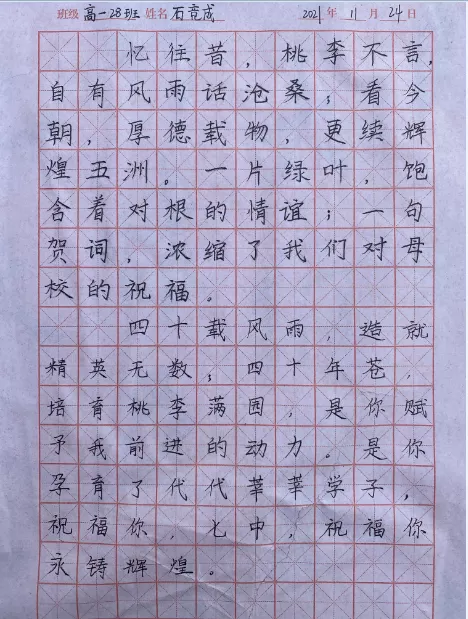 班级 高一28班 姓名 石竞成 2021年 11月 24日
忆往昔，桃李不言，
自有风雨话沧桑；看今
朝，厚德载物，更续辉
煌五洲。一片绿叶，饱
含着对根的情谊；一句
贺词，浓缩了我们对母
校的祝福。
四十载风雨，造就
精英无数；四十年苍，
培育桃李满园，是你赋
予我前进的动力。是你
孕育了代代莘莘学子，
祝福你，七中，祝福你
永铸辉煌。